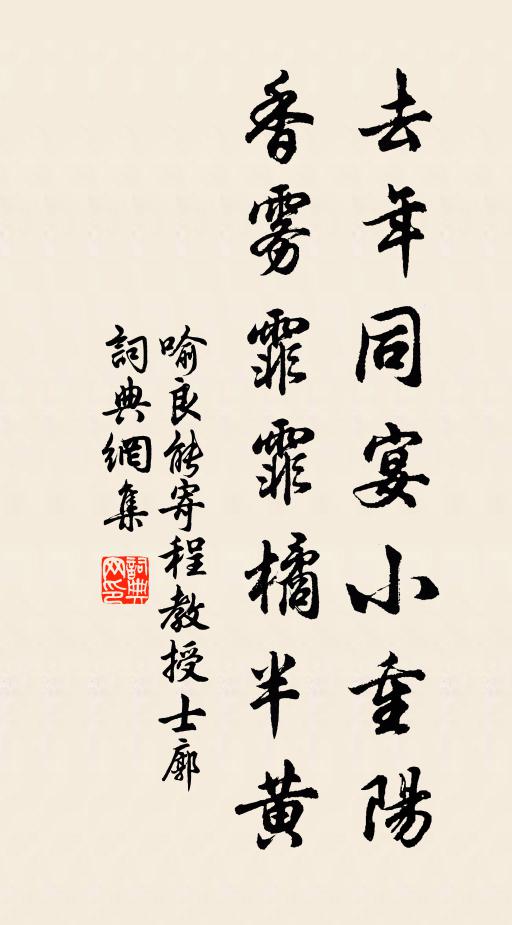 去年同宴小重陽
香雾霏霏橘半黃
喻良能寄程教授士廓
詞典網集
詞典网印